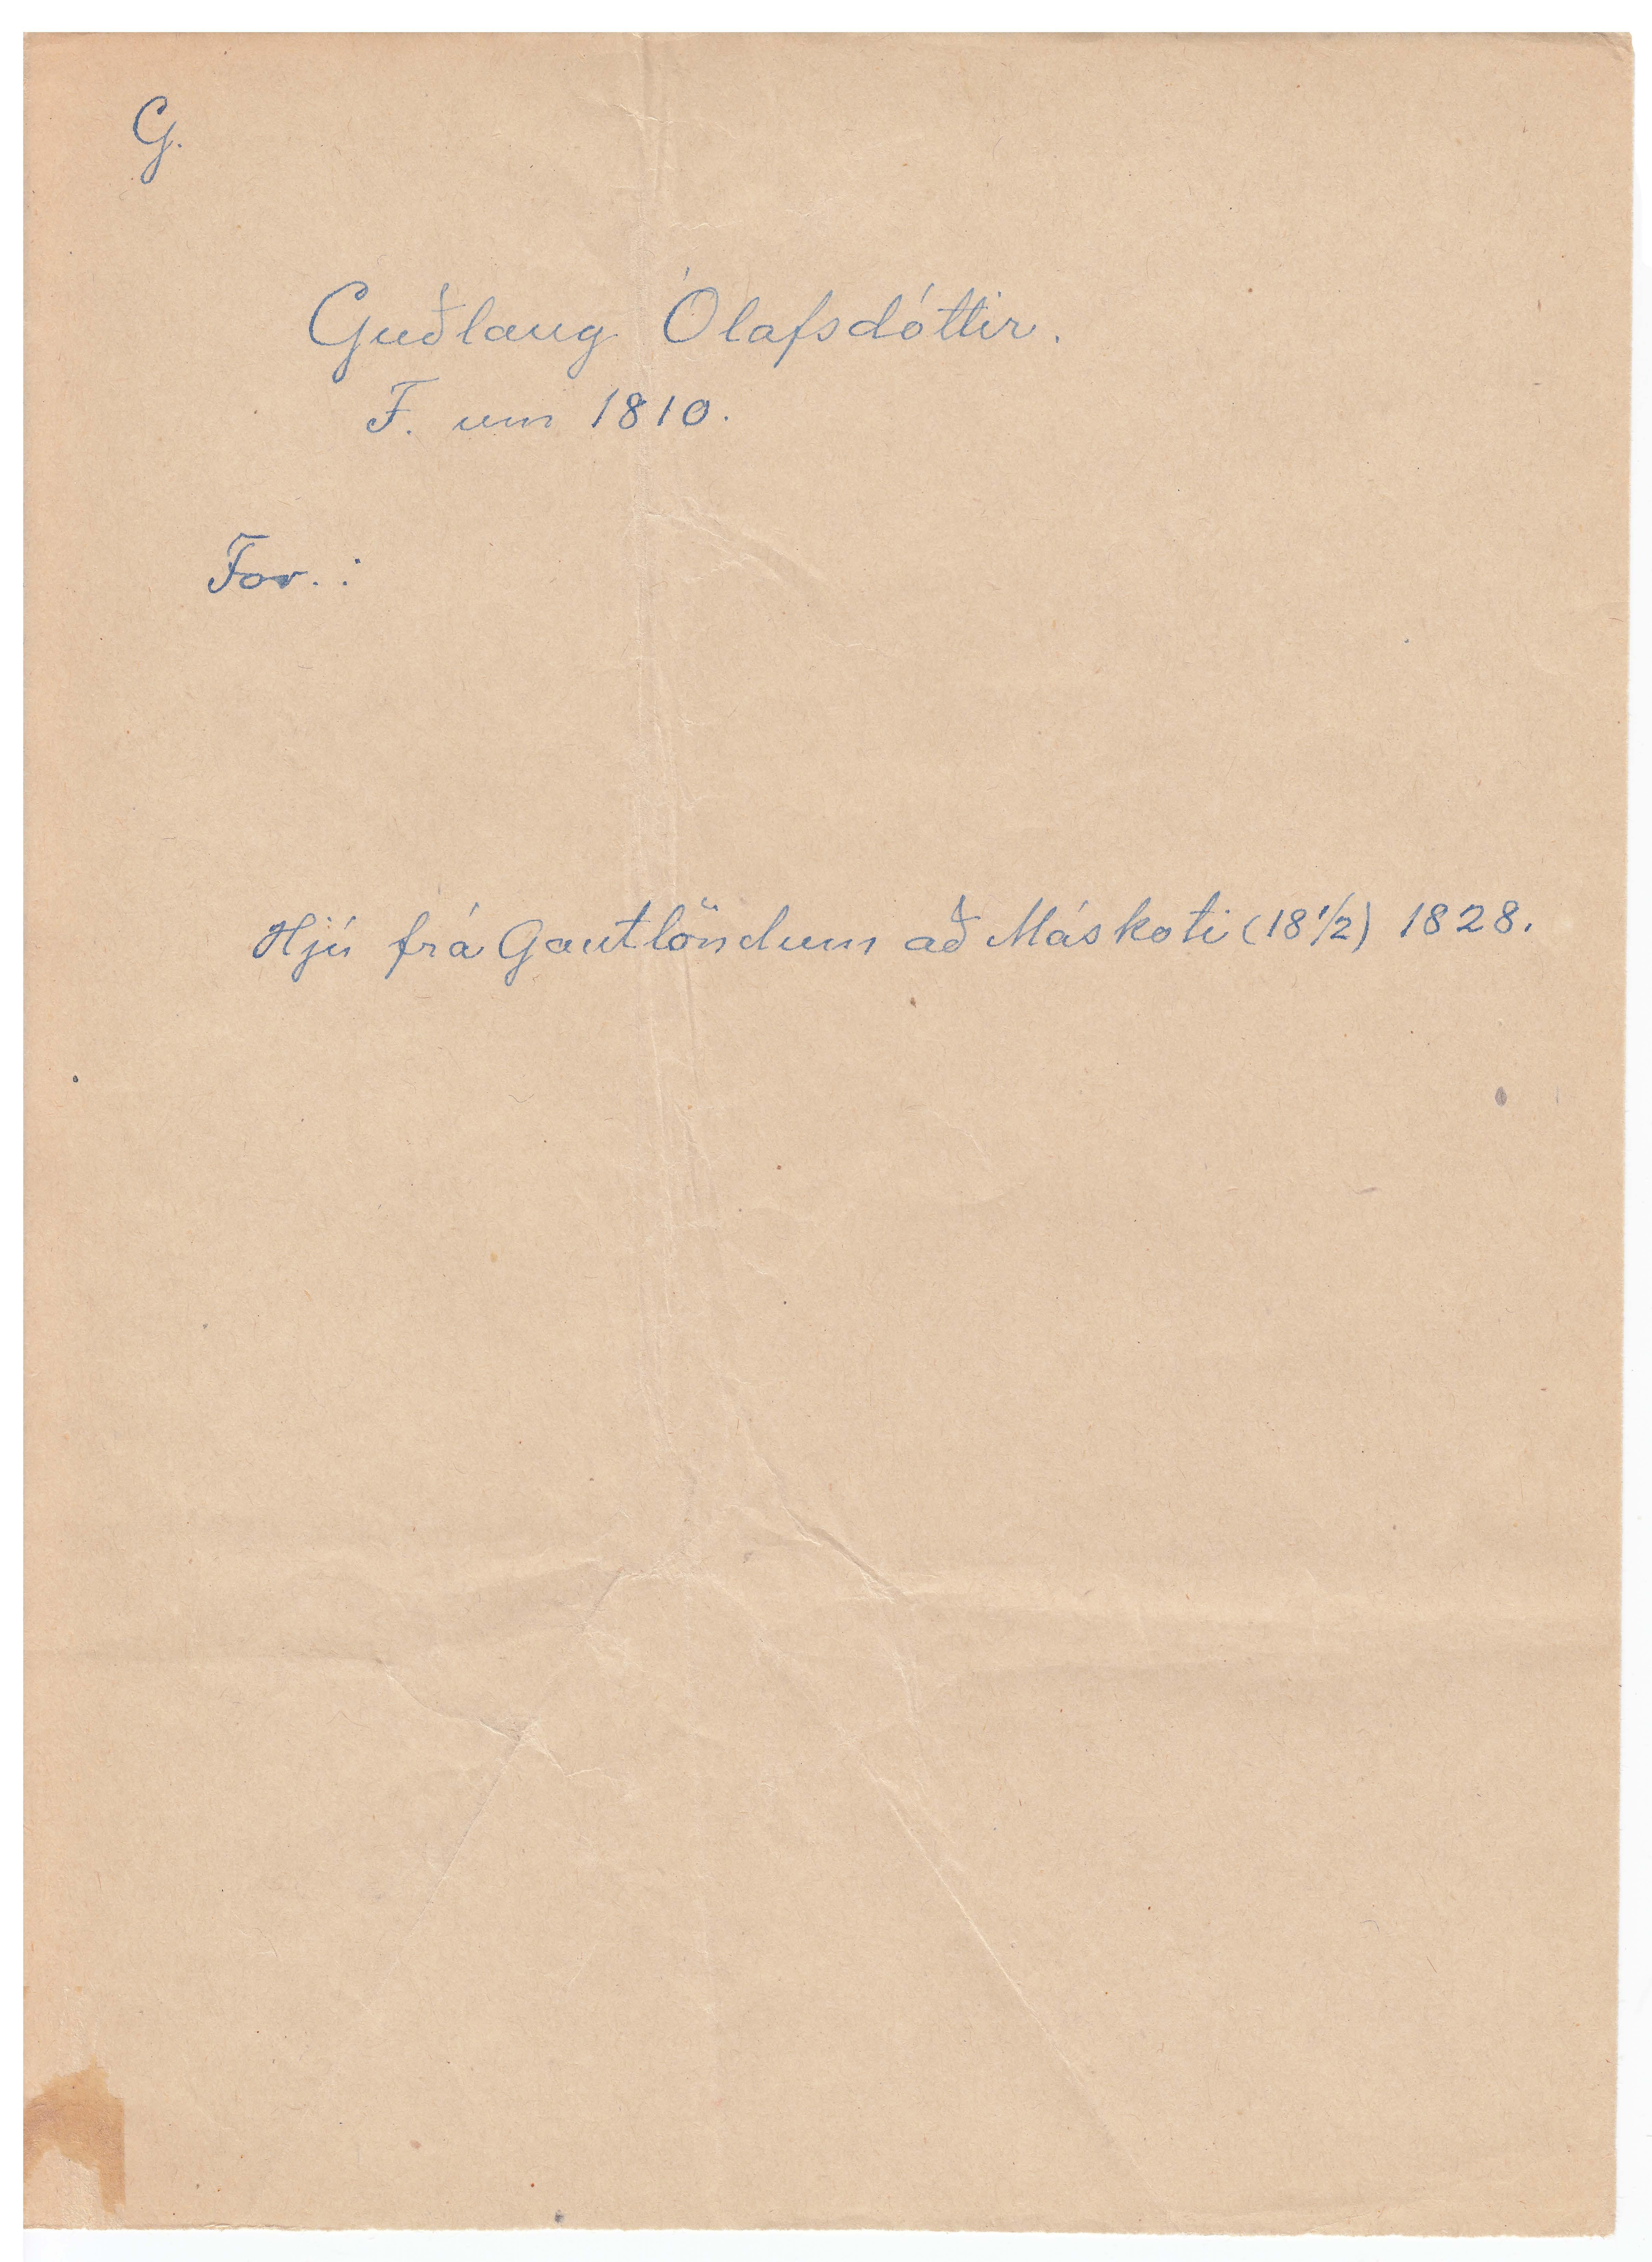 G.
Guðlaug Ólafsdóttir.
F. um 1810.
For. :
Hjú frá Gautlöndum að Máskoti (18 1/2) 1828.